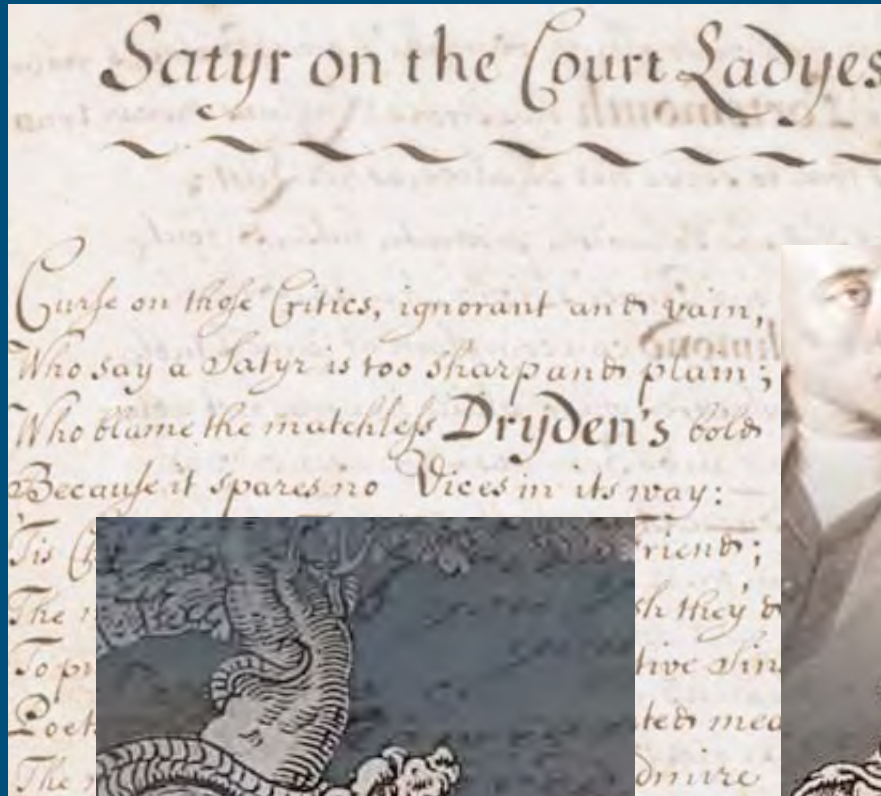 Satyr on the Court Ladyes
Curse on those Critics, ignorant and vain,
Who say a Satyr is too sharp and plain;
Who blame the matchless Dryden's bold
Because it spares no Vices in its way:
Tis riend;
The they
To tive Sin
Poet ted
The dmire